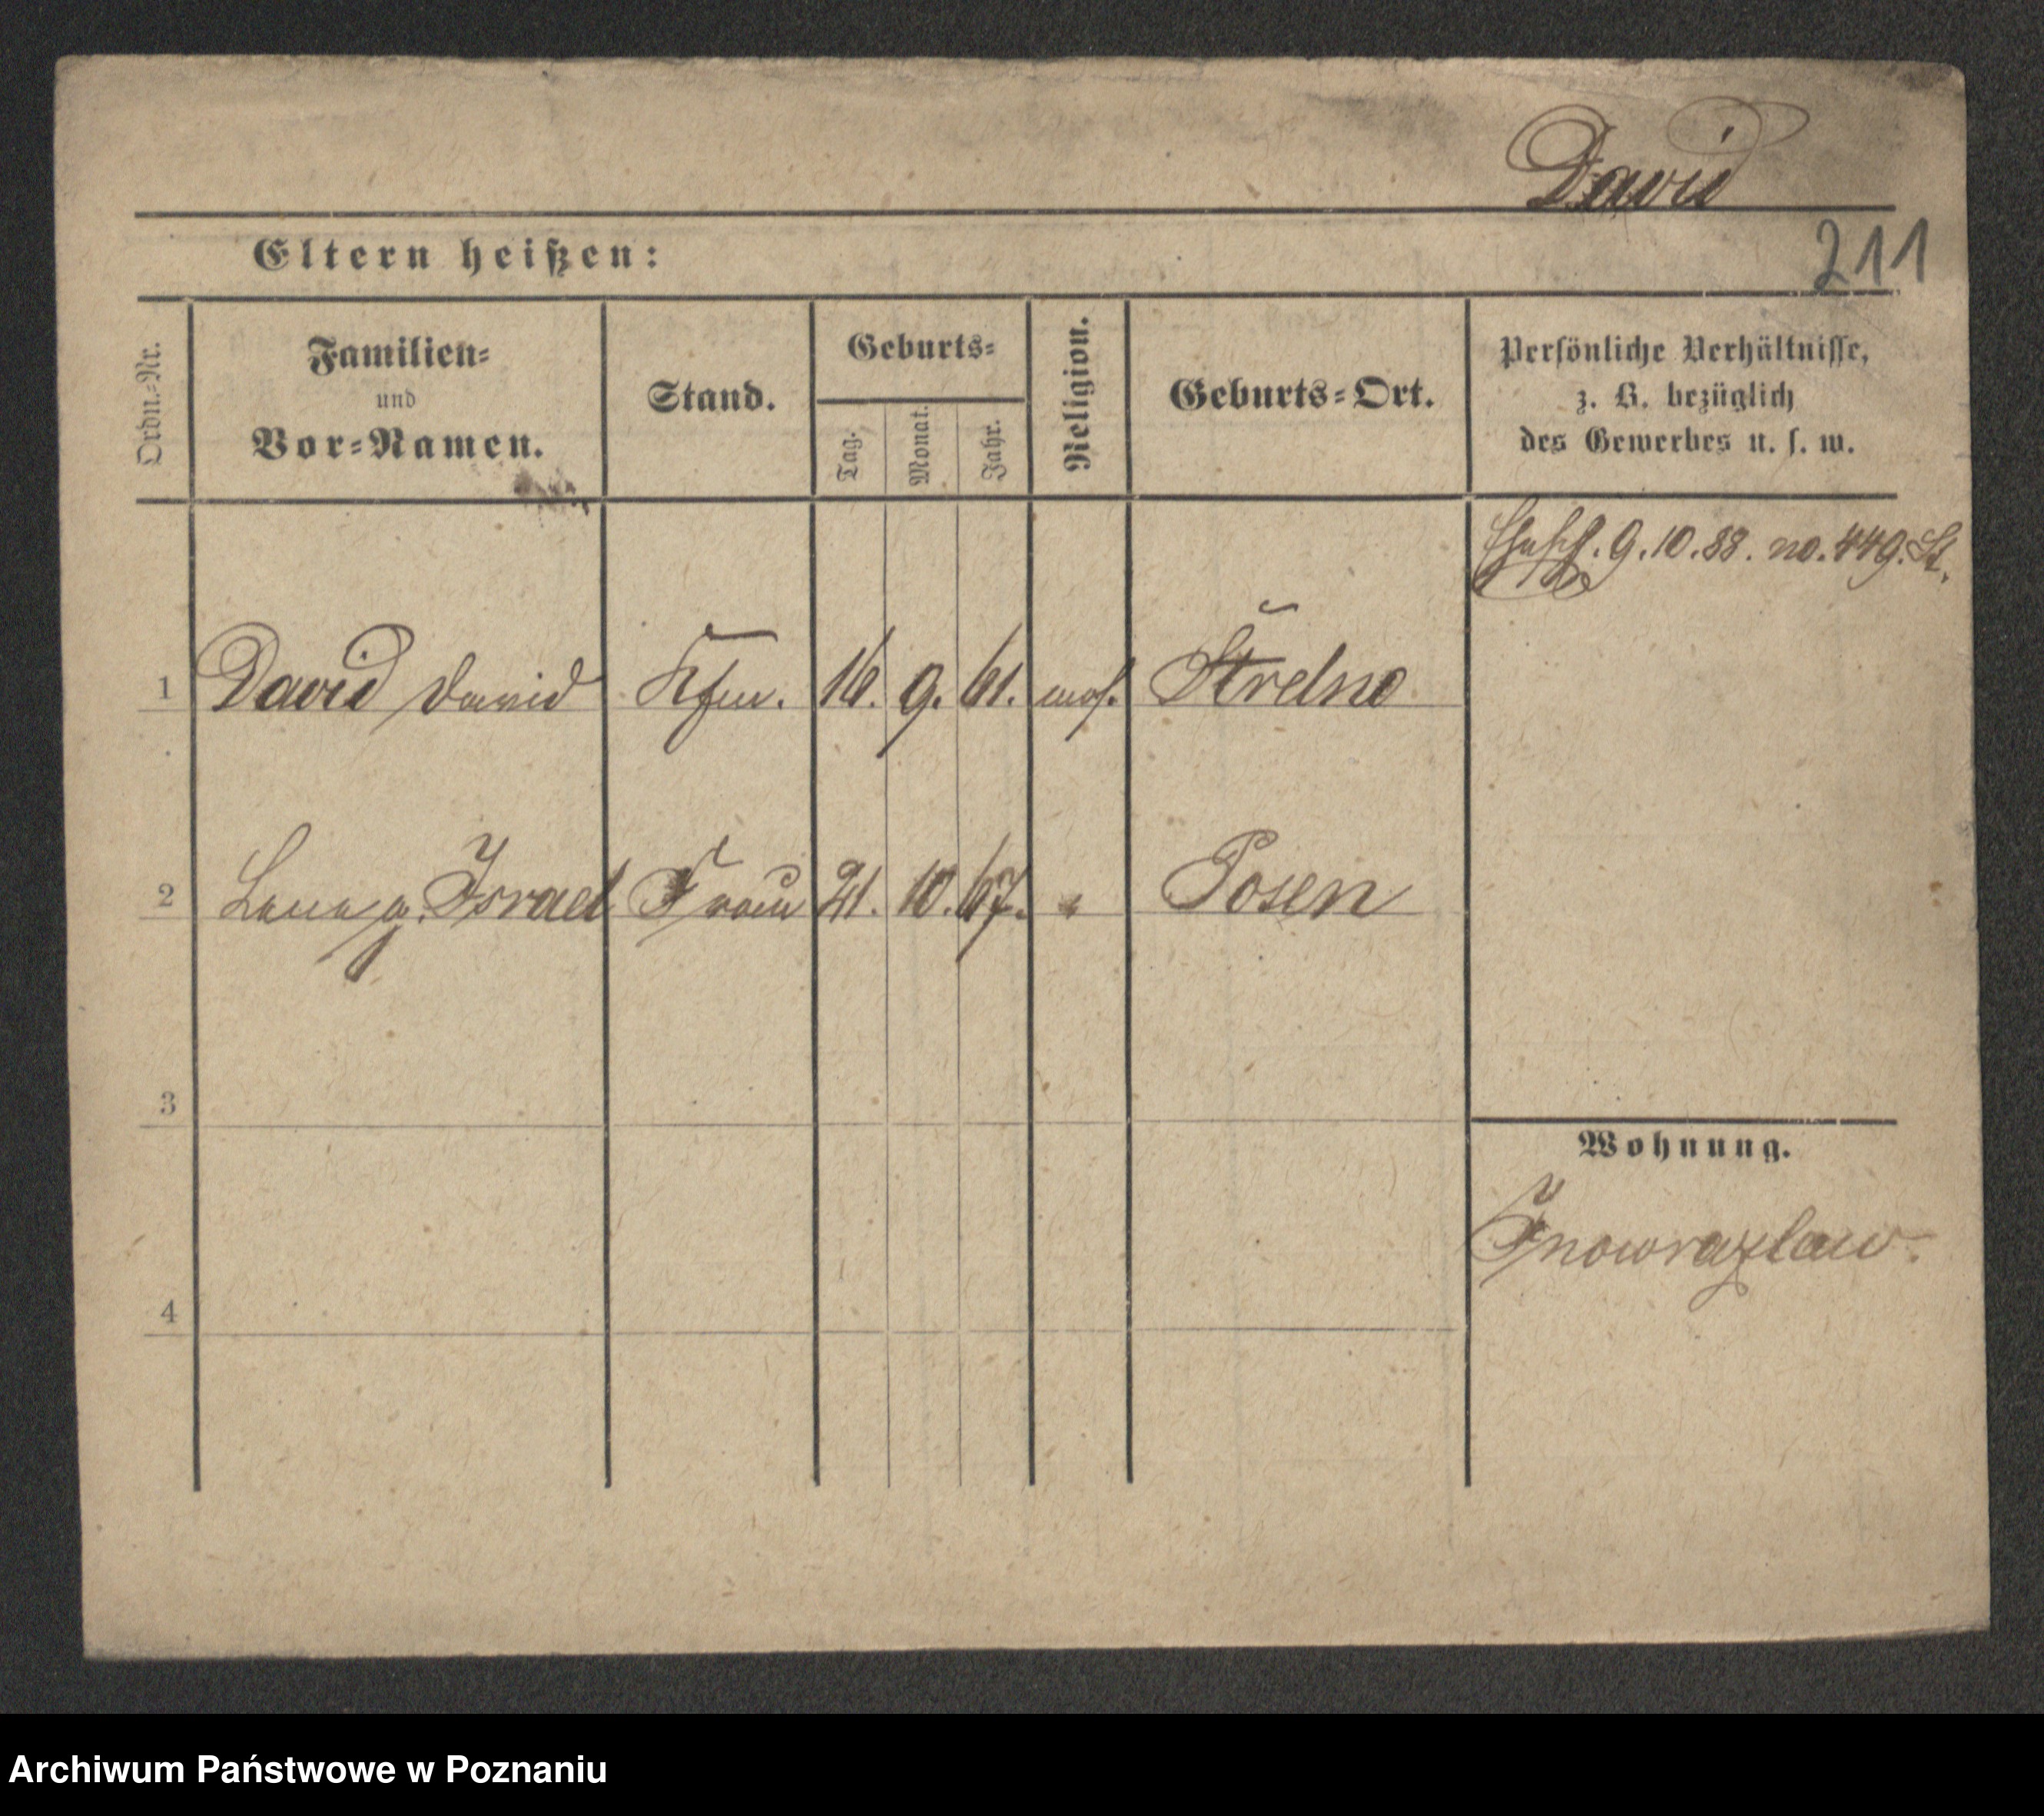 David
211
Eltern heißen:
Ordn.-Nr.
Familien-
und
Vor-Namen.
Stand.
Geburts-
Tag.
Monat.
Jahr.
Religion.
Geburts-Ort.
Persönliche Verhältnisse,
z. B. bezüglich
des Gewerbes u. s. w.
9.10.88. no. 449. St.
1 David David Kfm. 16. 9. 61. mos. Strelno
2 g. Israel Frau 21. 10. 67. " Posen
3
Wohnung.
Inowrazlaw.
4
Archiwum Państwowe w Poznaniu